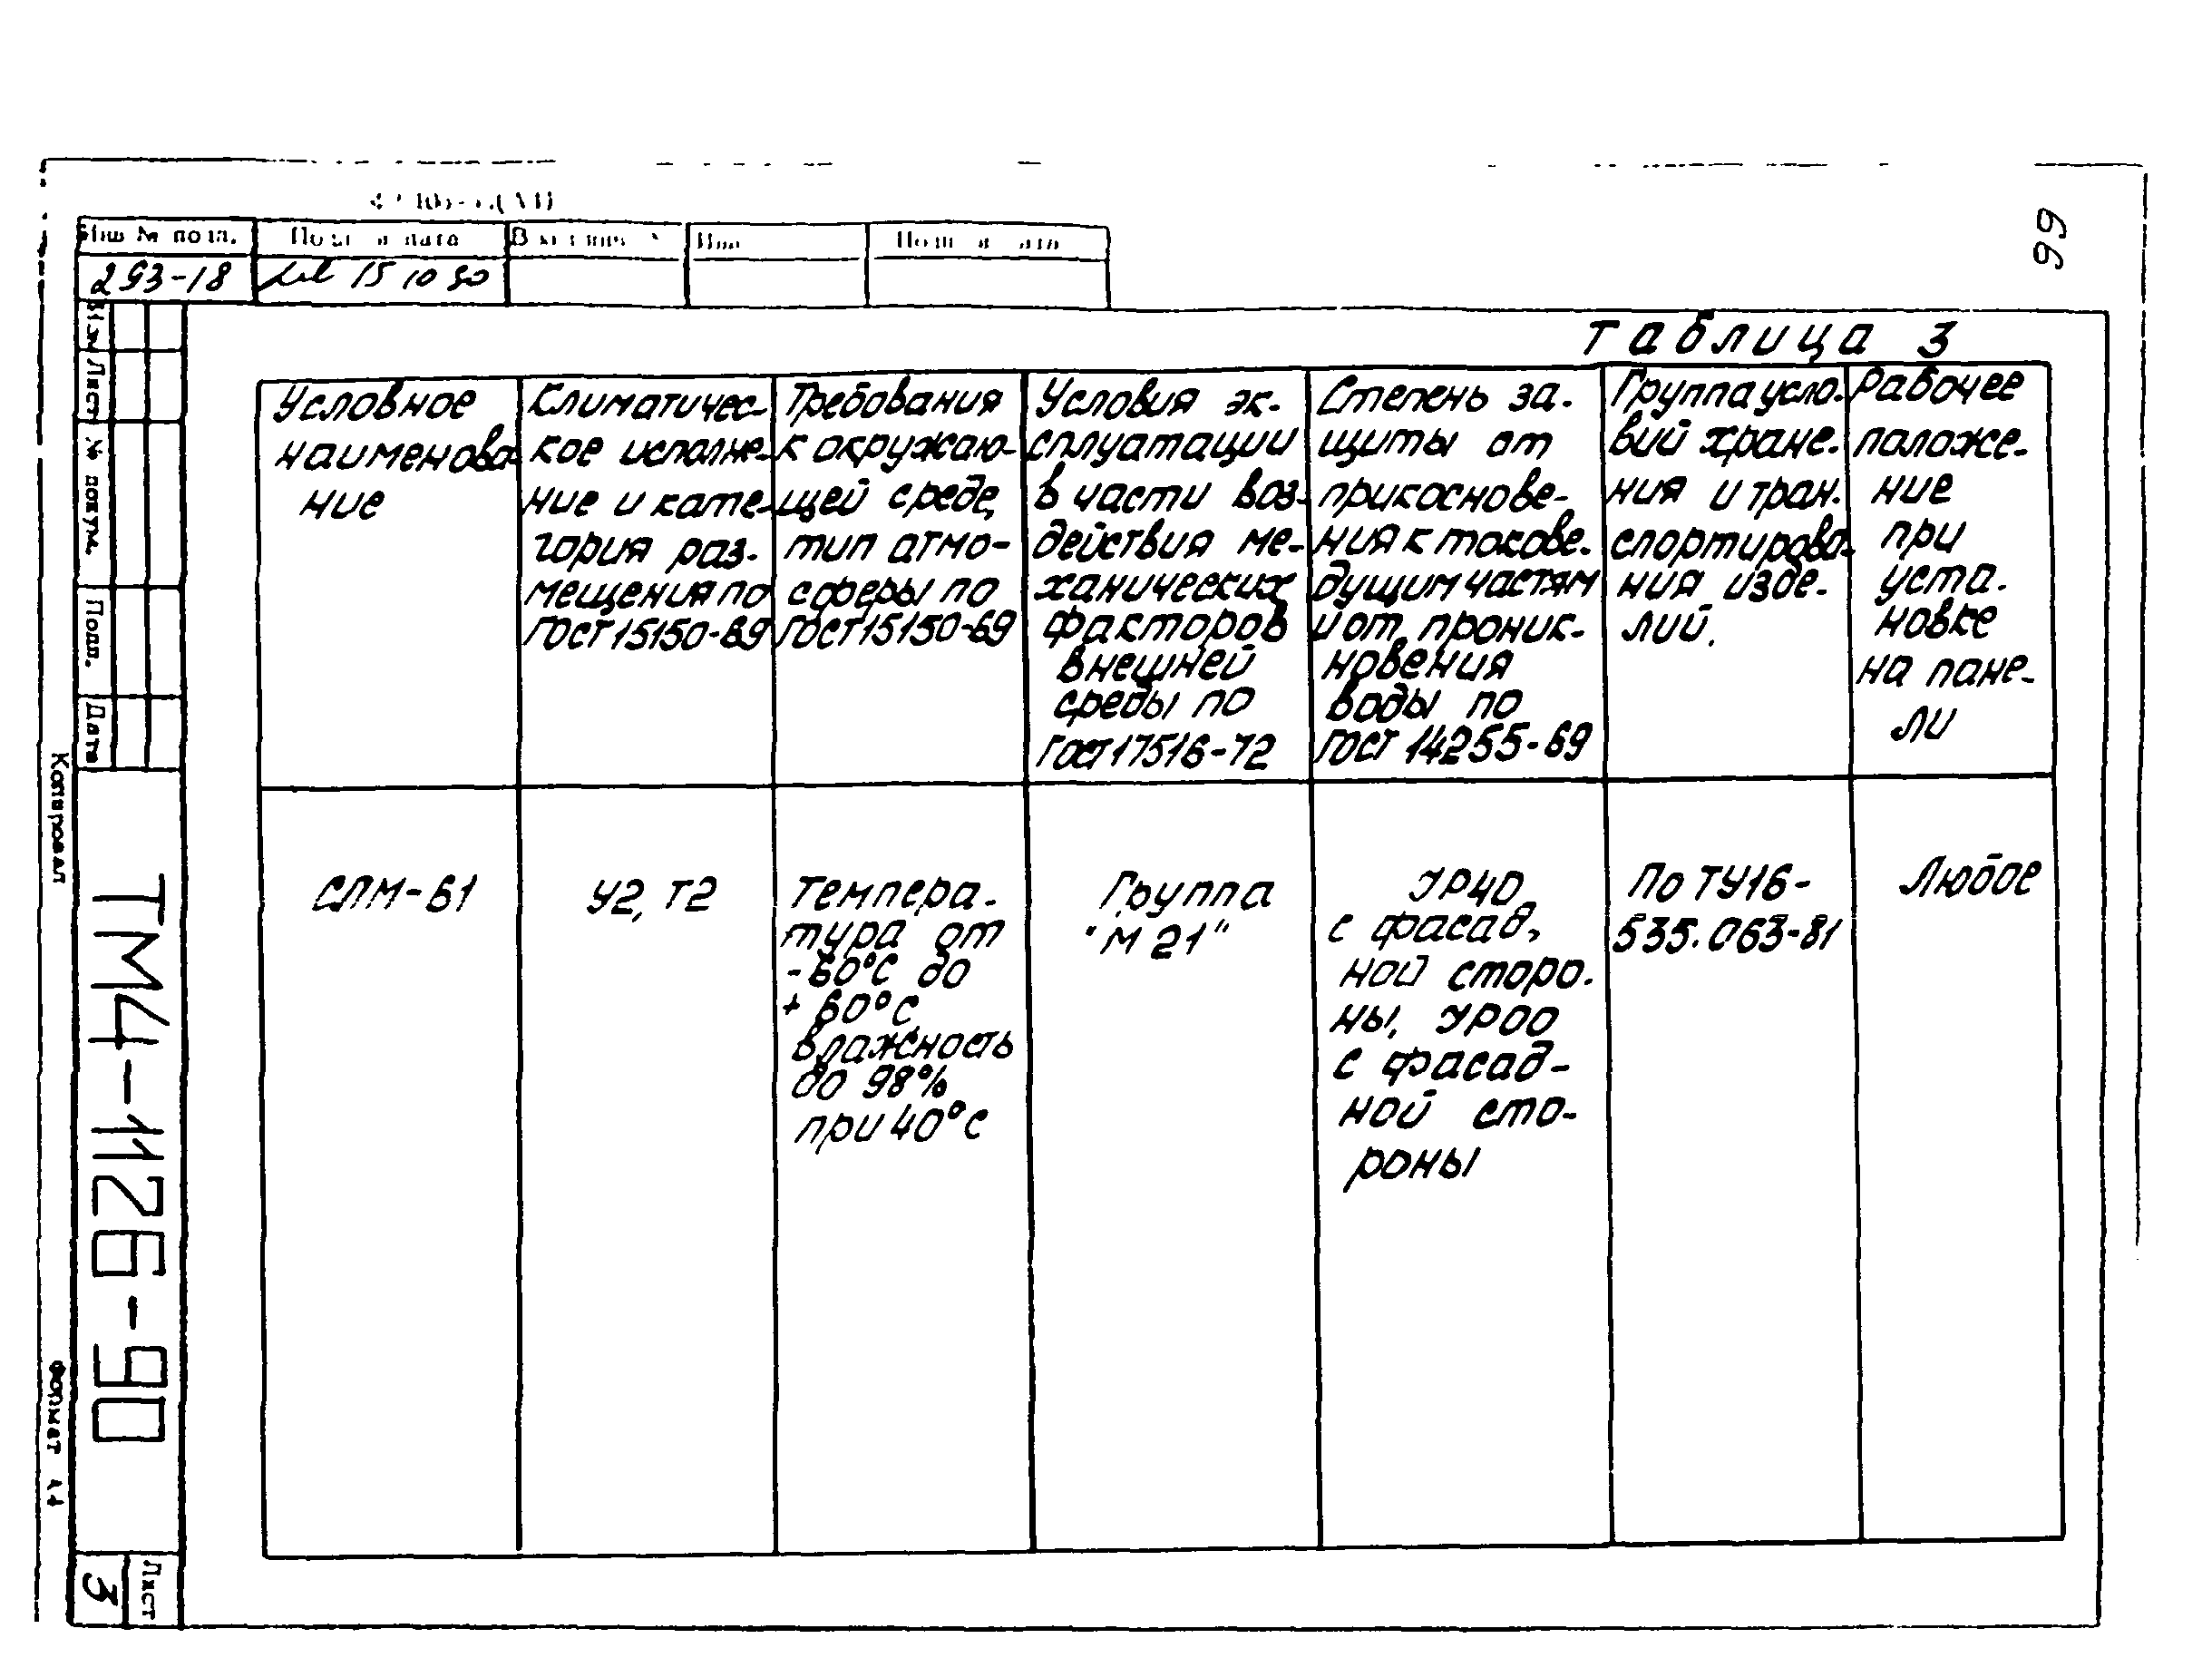 99
Инв № подл.
Подп и дата
293-18
15 10 90
Таблица 3
Условное
наименова-
ние
Климатичес-
кое исполне-
ние и кате-
гория раз-
мещения по
ГОСТ 15150-69
Требования
к окружаю-
щей среде,
тип атмо-
сферы по
ГОСТ 15150-69
Условия эк-
сплуатации
в части воз-
действия ме-
ханических
факторов
внешней
среды по
ГОСТ 17516-72
Степень за-
щиты от
прикоснове-
ния к токове-
дущим частям
и от проник-
новения
воды по
ГОСТ 14255-69
Группа усло-
вий хране-
ния и тран-
спортирова-
ния изде-
лий.
Рабочее
положе-
ние
при
уста-
новке
на пане-
ли
СЛМ-61
У2, Т2
Темпера-
тура от
-60°С до
+60°С,
влажность
до 98%
при 40°С
Группа
"М21"
УР40
с фасад-
ной сторо-
ны, УР00
с фасад-
ной сто-
роны
По ТУ16-
535.063-81
Любое
Изм
Лист
№ докум.
Подп.
Дата
Копировал
ТМ4-1126-90
Формат А4
Лист
3